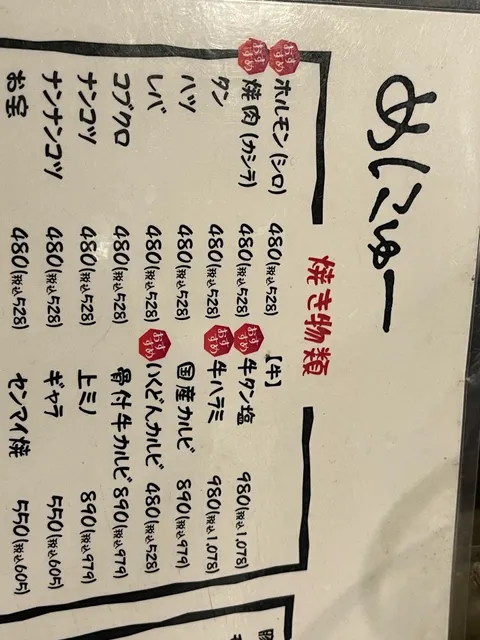 めにゅー
焼き物類
おすすめ ホルモン(シロ) 480(税込528)
おすすめ 焼肉(カシラ) 480(税込528)
タン 480(税込528)
ハツ 480(税込528)
レバ 480(税込528)
コブクロ 480(税込528)
ナンコツ 480(税込528)
ナンナンコツ 480(税込528)
お宝 480(税込528)
【牛】
おすすめ 牛タン塩 980(税込1,078)
おすすめ 牛ハラミ 980(税込1,078)
国産カルビ 890(税込979)
おすすめ いくどんカルビ 480(税込528)
骨付牛カルビ 890(税込979)
上ミノ 890(税込979)
ギャラ 550(税込605)
センマイ焼 550(税込605)